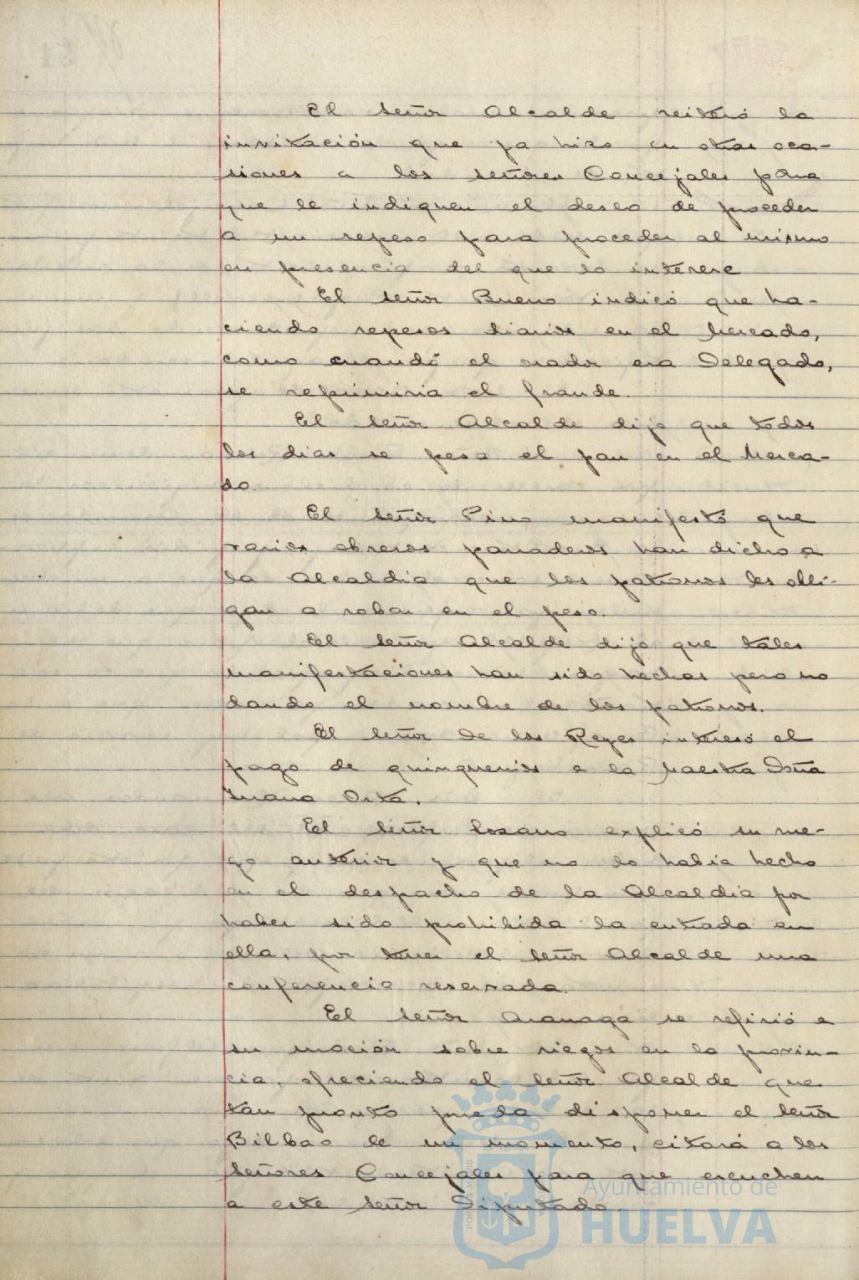 El señor Alcalde reiteró la
invitación que ya hizo en otras oca-
siones a los señores Concejales para
que le indiquen el deseo de proceder
a un repeso para proceder al mismo
en presencia del que lo interese
El señor Bueno indicó que ha-
ciendo repesos diarios en el Mercado,
como cuando el orador era Delegado,
se reprimiria el fraude.
El señor Alcalde dijo que todos
los dias se pesa el pan en el Merca-
do.
El señor Pino manifestó que
varios obreros panaderos han dicho a
la Alcaldia que los patronos les obli-
gan a robar en el peso.
El señor Alcalde dijo que tales
manifestaciones han sido hechas pero no
dando el nombre de los patronos.
El señor de los Reyes interesó el
pago de quinquenios a la Maestra Doña
Juana Orta.
El señor Losano explicó su rue-
go anterior y que no lo habia hecho
en el despacho de la Alcaldia por
haber sido prohibida la entrada en
ella, por tener el señor Alcalde una
conferencia reservada.
El señor Aranaga se refirió a
su moción sobre riegos en la provin-
cia, ofreciendo el señor Alcalde que
tan pronto pueda disponer el señor
Bilbao de un momento, citará a los
señores Concejales para que escuchen
a este señor Diputado.
Ayuntamiento de
HUELVA